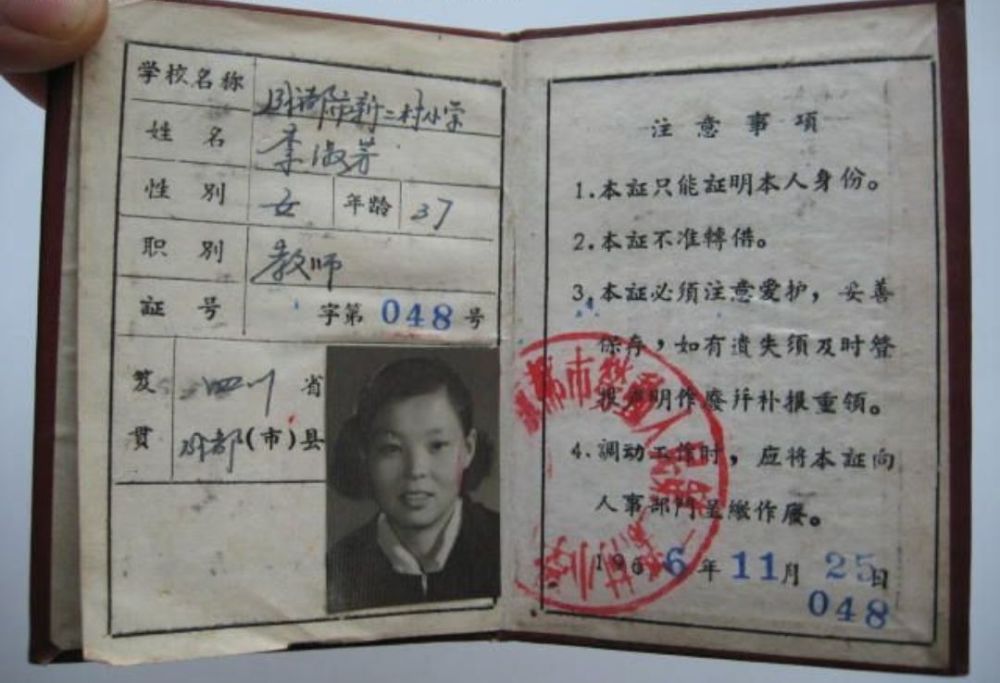 学校名称 成都市新二村小学
姓 名 李淑芳
性 别 女 年龄 37
职 别 教师
証 号 字第 048 号
笈 四川 省
贯 成都(市)县
注 意 事 項
1.本証只能証明本人身份。
2.本証不准轉借。
3.本証必須注意爱护，妥善
保存，如有遺失須及时登
报声明作廢幷补报重領。
4.調动工作时，应将本証向
人事部門呈繳作廢。
1966年11月25日
048